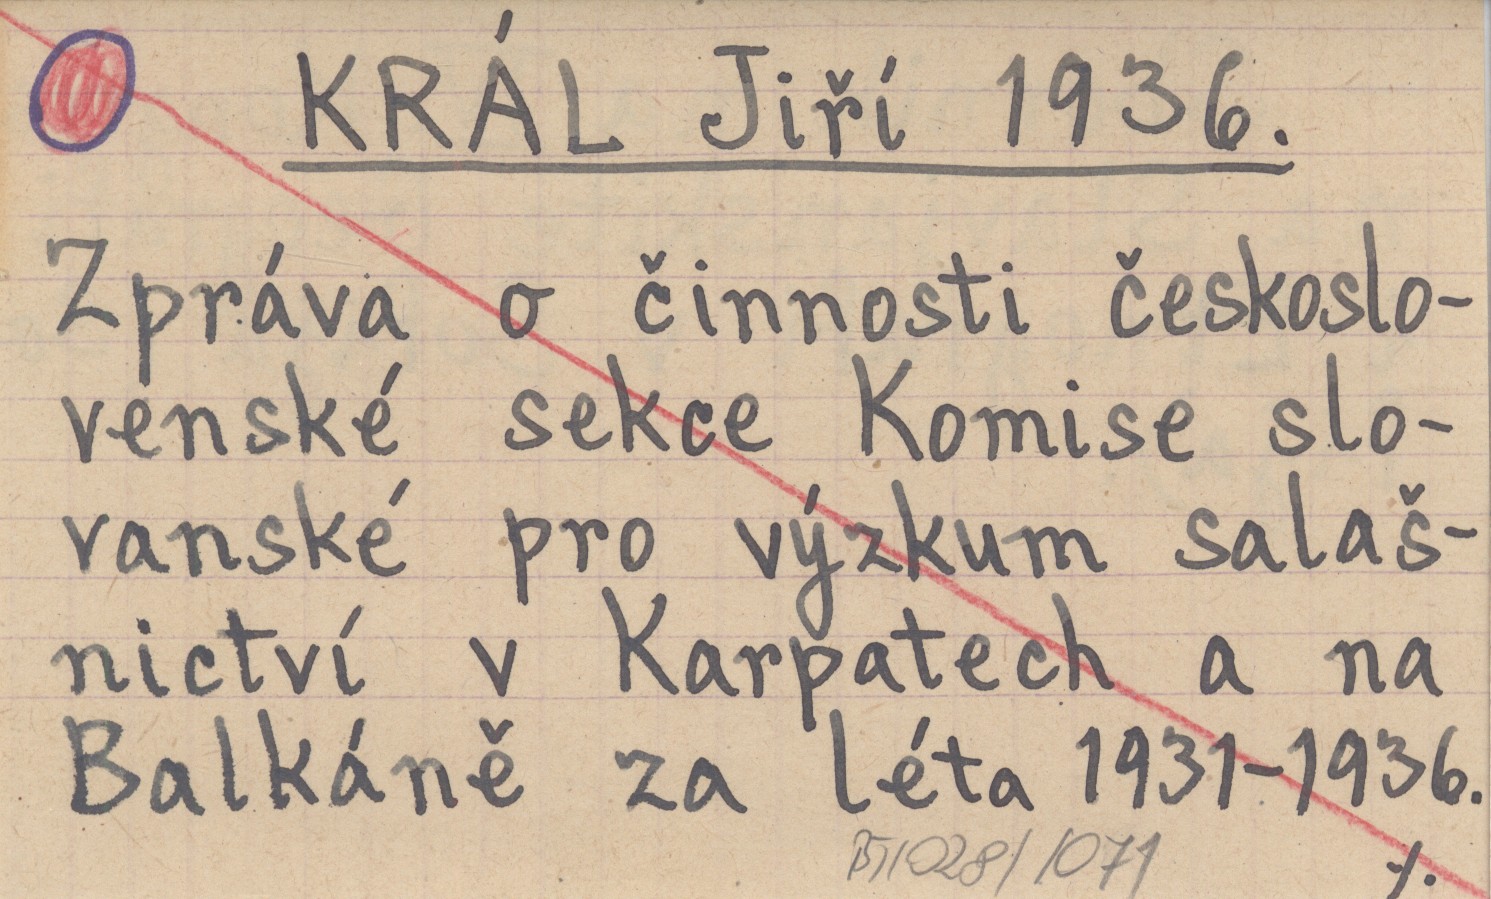 KRÁL Jiří 1936.
Zpráva o činnosti českoslo-
venské sekce Komise slo-
vanské pro výzkum salaš-
nictví v Karpatech a na
Balkáně za léta 1931-1936.
1028/1071
./.